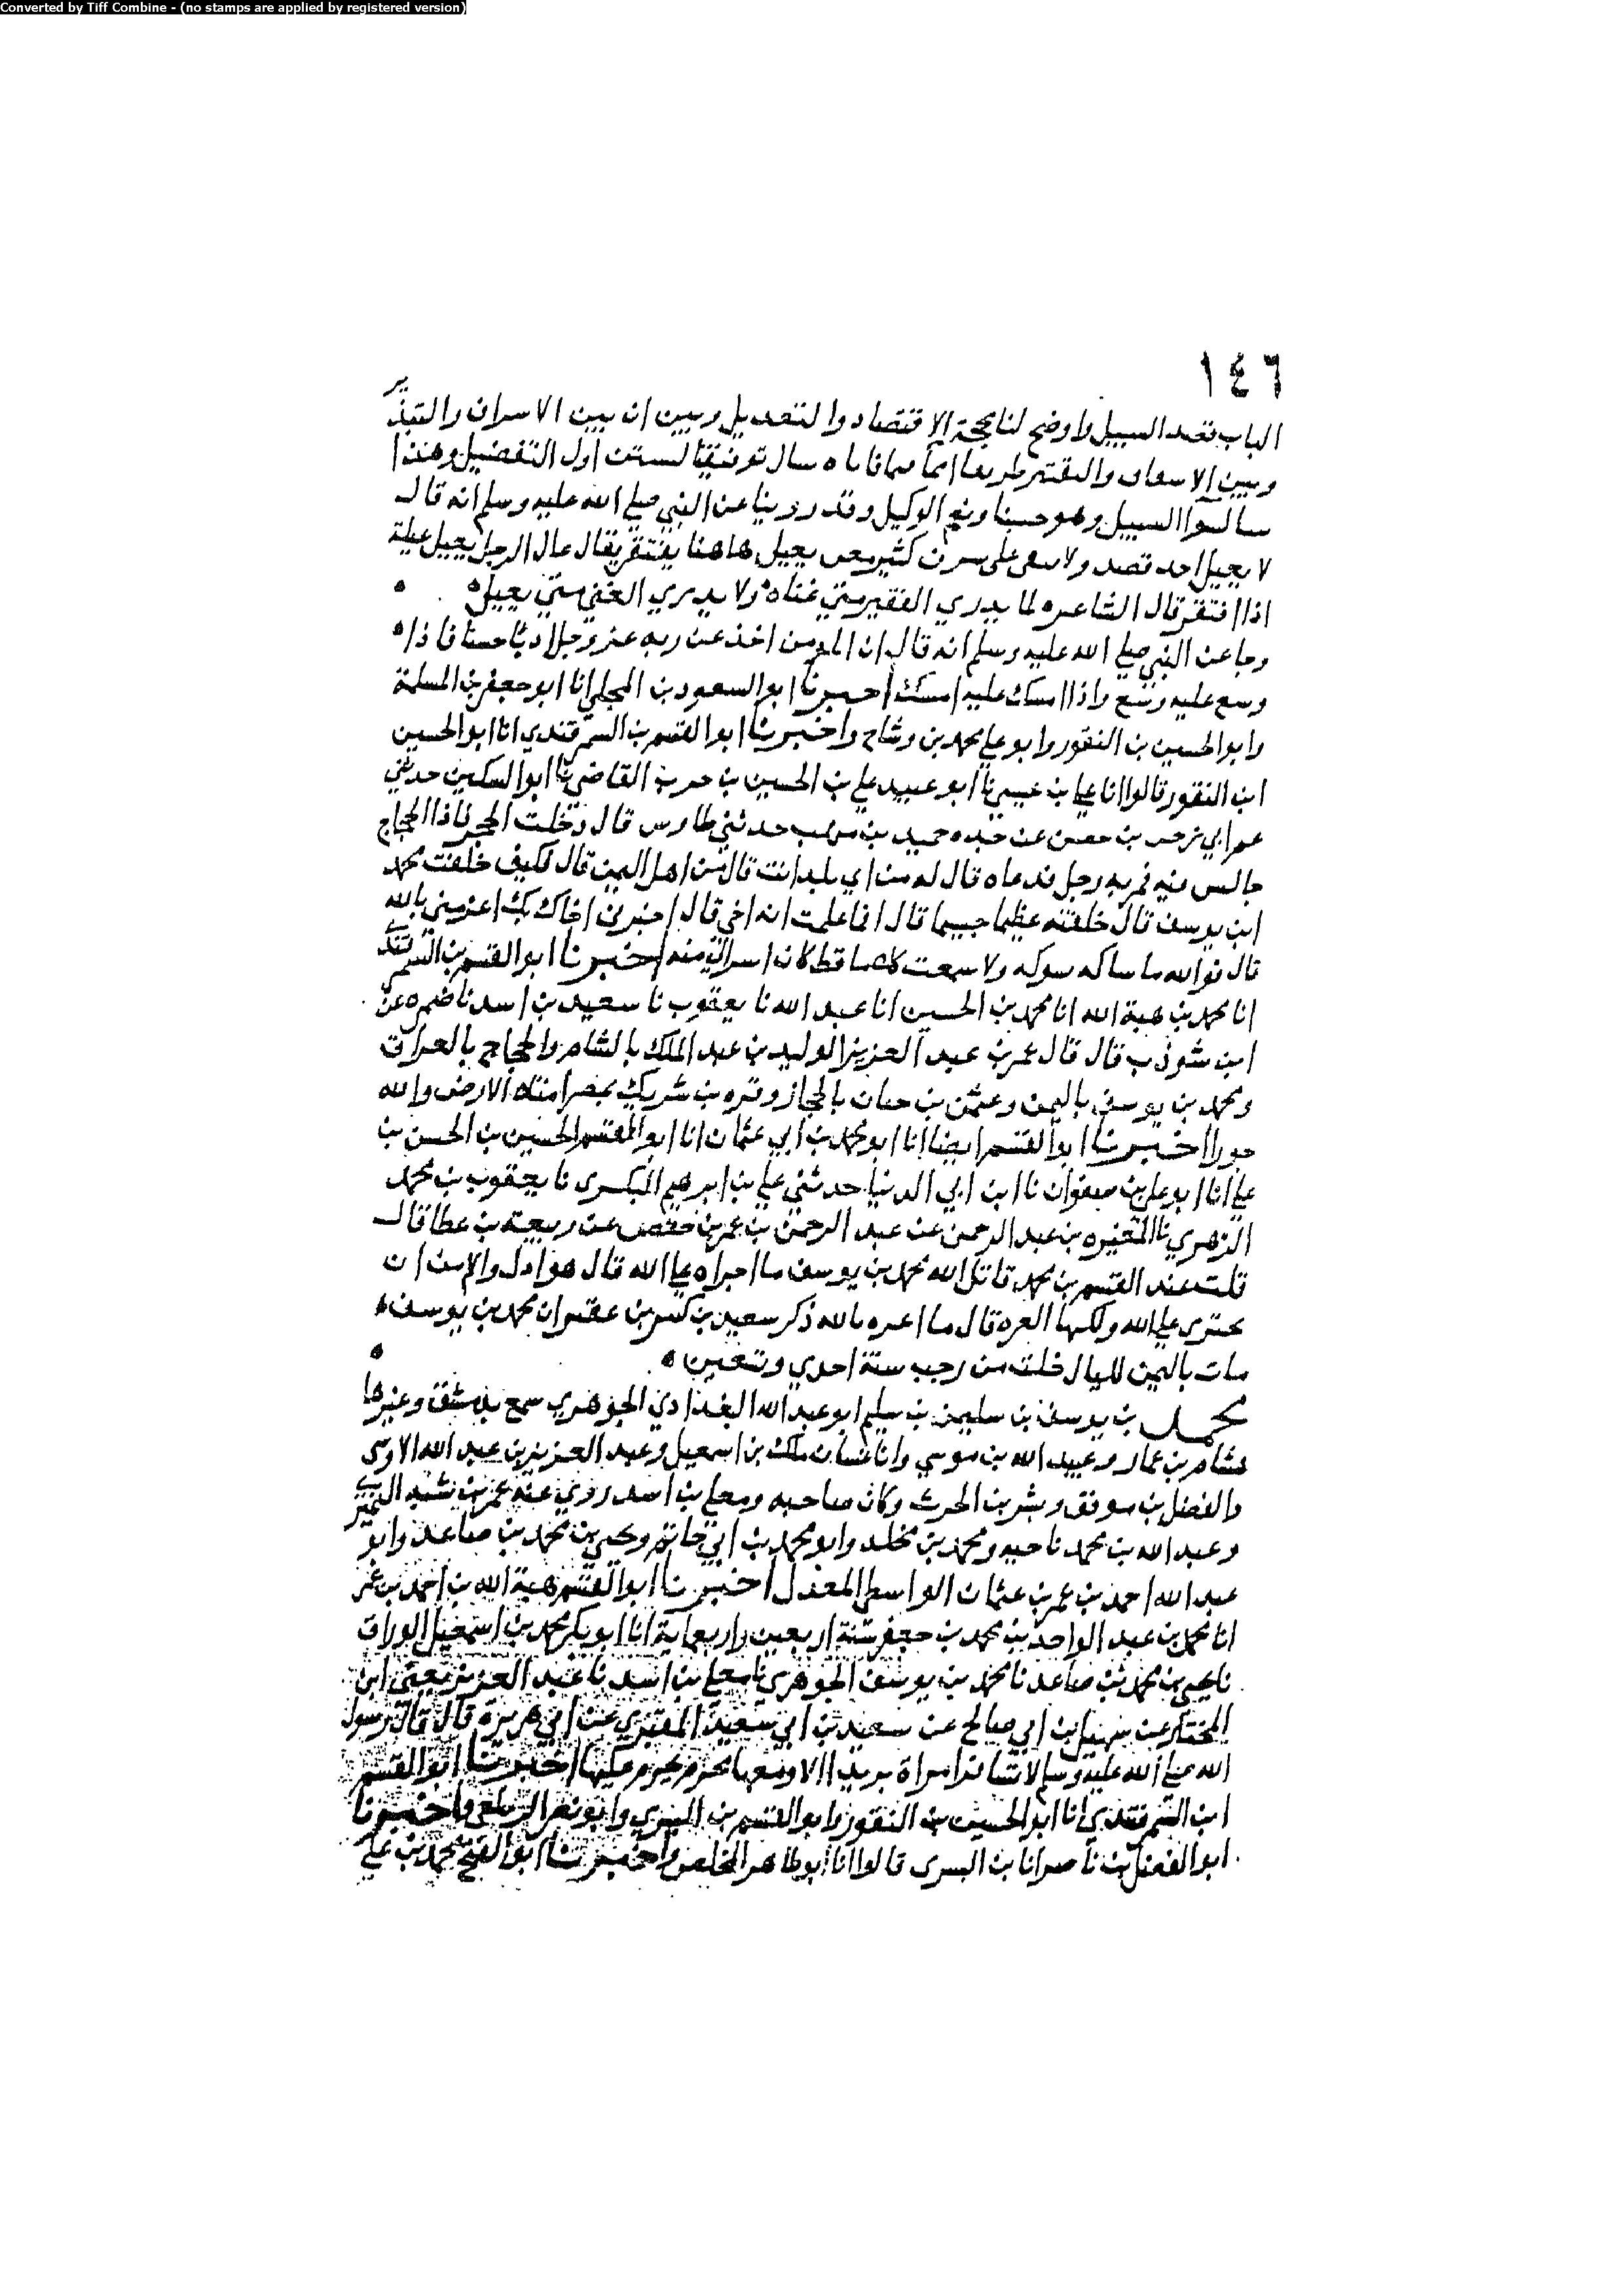 Converted by Tiff Combine - (no stamps are applied by registered version)
١٤٦
الباب قصد السبيل واوضح لنا محجة الاقتصاد والتعديل وبين ان بين الاسراف والتبذير
وبين الاسعاف والتقتير طريقا امما فاياه سال توفيقنا لسنن اول التفضيل وهذا
سالوا السبيل وهو حسبنا ونعم الوكيل وقد روينا عن النبي صلى الله عليه وسلم انه قال
لا يعيل احد قصد ولا يبقى على سرف كثير معنى يعيل هاهنا يفتقر يقال عال الرجل يعيل عيلة
اذا افتقر قال الشاعر ٥ لما يدري الفقير متى غناه ٥ ولا يدري الغني متى يعيل ٥
وجا عن النبي صلى الله عليه وسلم انه قال ان المومن اخذ عن ربه عز وجل ادبا حسنا فاذا ٥
وسع عليه وسع واذا امسك عليه امسك اخبرنا ابو السعود بن المجلي انا ابو جعفر بن المسلمة
وابو الحسين بن النقور وابو علي محمد بن وشاح واخبرنا ابو القسم بن السمرقندي انا ابو الحسين
ابن النقور قالوا انا علي بن عيسى نا ابو عبيد علي بن الحسين بن حرب القاضي نا ابو السكين حدثني
عم ابي زحر بن حصن عن جده حميد بن منهب حدثني طاوس قال دخلت الحجر فاذا الحجاج
جالس فيه فمر به رجل فدعاه قال له من اي بلد انت قال من اهل اليمن قال فكيف خلفت محمد
ابن يوسف قال خلفته عظيما جسيما قال اما علمت انه اخي قال اخبرني اخاك بك اعز مني بالله
قال فوالله ما ساكه سوكه ولا سمعت كلاما قط كان اسر الي منه اخبرنا ابو القسم بن السمرقندي
انا محمد بن هبة الله انا محمد بن الحسين انا عبد الله نا يعقوب نا سعيد بن اسد نا ضمره عن
ابن شوذب قال قال عمر بن عبد العزيز الوليد بن عبد الملك بالشام والحجاج بالعراق
ومحمد بن يوسف باليمن وعثمن بن حيان بالحجاز وقره بن شريك بمصر امتلات الارض والله
جورا اخبرنا ابو القسم ايضا انا ابو محمد بن ابي عثمان انا ابو القسم الحسين بن الحسن بن
علي انا ابو علي بن صفوان نا ابن ابي الدنيا حدثني علي بن ابرهيم اليشكري نا يعقوب بن محمد
الزهري نا المغيره بن عبد الرحمن عن عبد الرحمن بن عمر بن حفص عن ربيعة بن عطا قال
قلت عند القسم بن محمد قاتل الله محمد بن يوسف ما اجراه على الله قال هو اذل والام من ان
يجترى على الله ولكنها الغره قال ما اغره بالله ذكر سعيد بن كثير بن عفير ان محمد بن يوسف ٥
مات باليمن لليال خلت من رجب سنة احدي وتسعين ٥
محمد بن يوسف بن سليمن بن سليم ابو عبد الله البغدادي الجوهري سمع بدمشق وغيرها
هشام بن عمار وعبيد الله بن موسي وابا غسان ملك بن اسمعيل وعبد العزيز بن عبد الله الاويسي
والفضل بن موفق وبشر بن الحرث وكان صاحبه ومعلي بن اسد روي عنه عمر بن شبه النميري
وعبد الله بن محمد ناجيه ومحمد بن مخلد وابو محمد بن ابي حاتم ويحيى بن محمد بن صاعد وابو
عبد الله احمد بن عمر بن عثمان الواسطي المعدل اخبرنا ابو القسم هبة الله بن احمد بن عمر
انا محمد بن عبد الواحد بن محمد بن جعفر سنة اربعين واربعماية انا ابو بكر محمد بن اسمعيل الوراق
نا يحيى بن محمد بن صاعد نا محمد بن يوسف الجوهري نا معلي بن اسد نا عبد العزيز يعني ابن
المختار عن سهيل بن ابي صالح عن سعيد بن ابي سعيد المقبري عن ابي هريرة قال قال رسول
الله صلى الله عليه وسلم لا تسافر امراة بريدا الا ومعها محرم يحرم عليها اخبرنا ابو القسم
ابن السمرقندي انا ابو الحسين بن النقور وابو القسم بن البسري وابو نصر الزينبي واخبرنا
ابو الفضل بن ناصر انا بن البسرى قالوا انا ابو طاهر المخلص واخبرنا ابو الفتح محمد بن علي